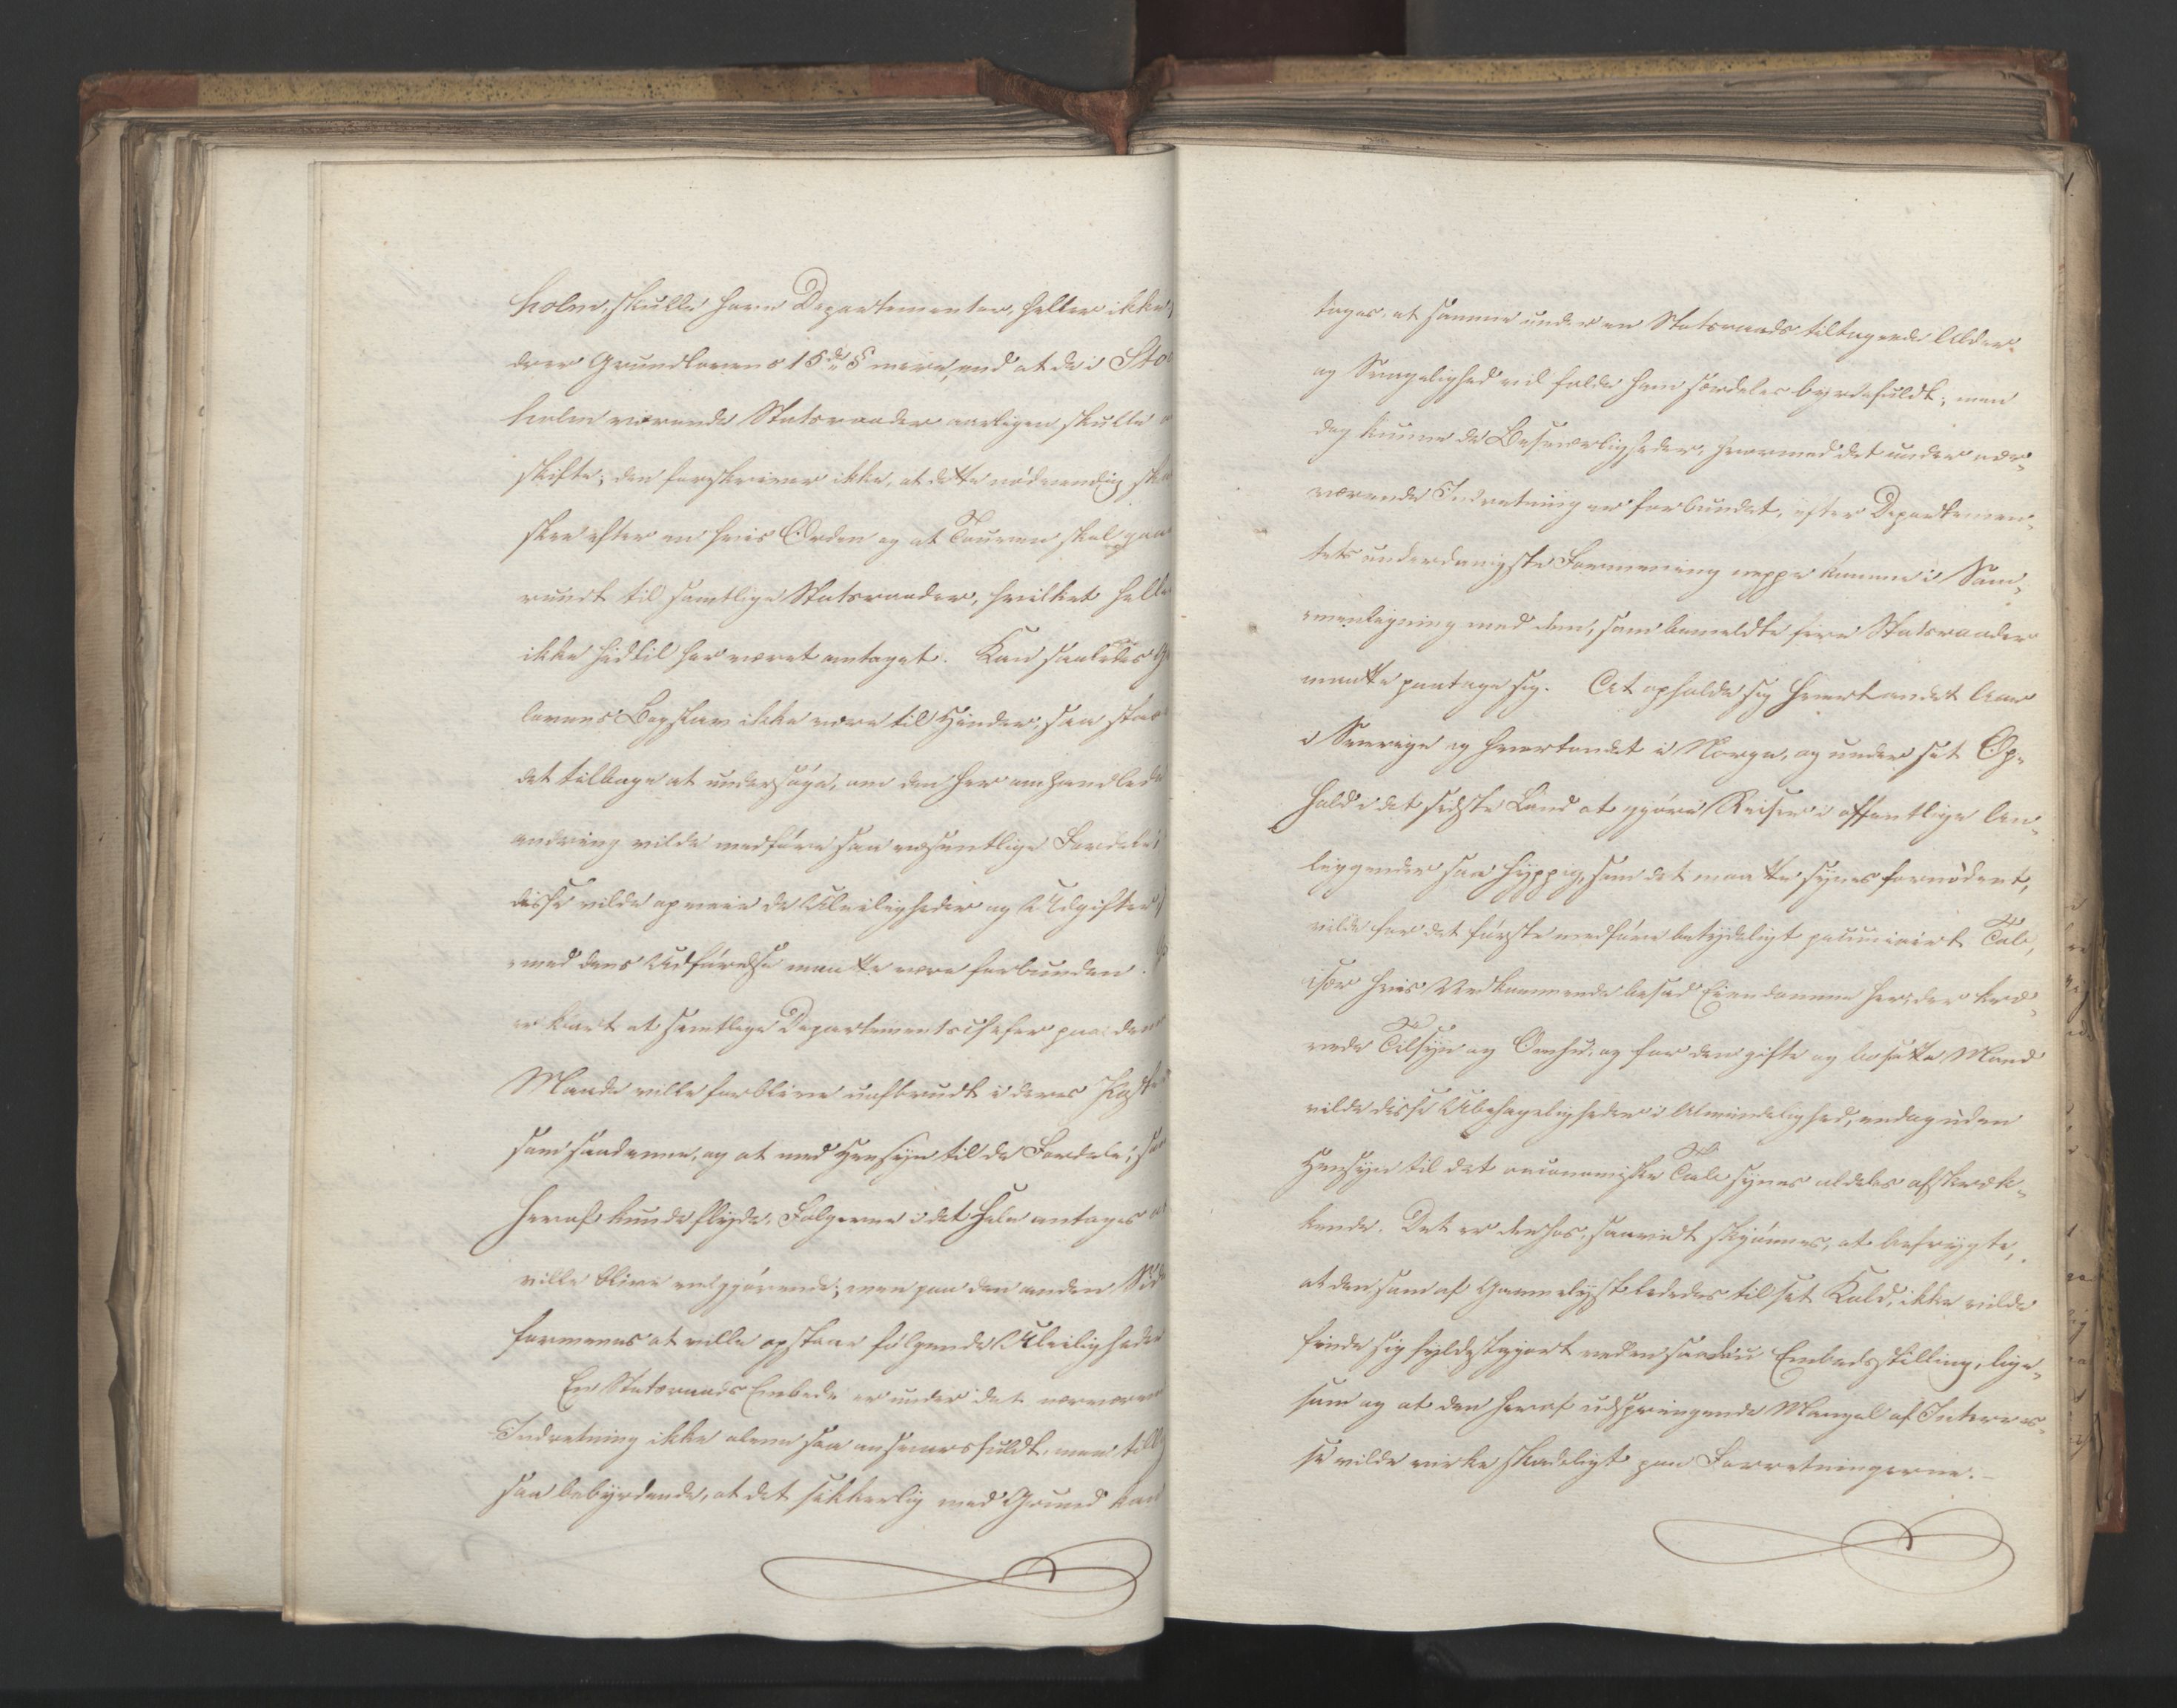 holm, skulle have Departementer, heller ikke
der Grundlovens 15de § mere, end at de i Sto
holm værende Statsraader aarligen skulle
skifte; den foreskriver ikke, at dette nødvendig skal
skee efter en hvis Orden og at Touren skal gaae
rundt til samtlige Statsraader, hvilket heller
ikke hidtil har været antaget. Kan saaledes G
lovens Bogstav ikke være til Hinder, saa staaer
det tilbage at undersøge, om den her omhandlede
andring vilde medføre saa væsentlige Fordele,
disse vilde opveie de Uleiligheder og Udgifter,
med dens Udførelse maatte være forbunden.
er klart at samtlige Departementschefer paa denne
Maade ville forblive uafbrudt i deres Post
som saadanne, og at med Hensyn til de Fordele, som
heraf kunde flyde, Følgerne i det Hele antages at
ville blive velgjørende; men paa den anden Side
formenes at ville opstaae følgende Uleiligheder
En Statsraads Embede er under det nærværende
Indretning ikke alene saa ansvarsfuldt, men tillige
saa bebyrdende, at det sikkerlig med Grund kan
tages, at samme under en Statsraads tiltagende Alder
og Svagelighed vil falde ham særdeles byrdefuldt; men
dog kunne de Besværligheder, hvormed det under nær-
værende Indretning er forbundet, efter Departemen-
tets underdanigste Formening neppe komme i Sam-
menligning med dem, som bemeldte fire Statsraader
maatte paatage sig. At opholde sig hvertandet Aar
i Sverige og hvertandet i Norge, og under sit Op-
hold i det sidste Land at gjøre Reiser i offentlige An-
liggender saa hyppig, som det maatte synes fornødent,
vilde for det første medføre betydeligt pecuniairt Tab,
især hvis Vedkommende besad Eiendomme her, der kræ-
vede Tilsyn og Omhu, og for den gifte og bosatte Mand
vilde disse Ubehageligheder i Almindelighed, endog uden
Hensyn til det oeconomiske Tab synes aldeles afskræk-
kende. Det er derhos, saavidt skjønnes, at befrygte,
at den som af Gammelyst lededes til sit Kald, ikke vilde
finde sig fyldestgjort ved en saadan Embedsstilling, lige-
som og at den heraf udspringende Mangel af Interes-
se vilde virke skadeligt paa Forretningerne.